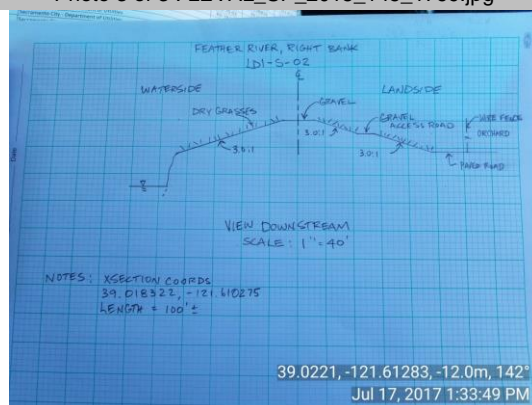 FEATHER RIVER, RIGHT BANK
LD1-S-02
WATERSIDE
LANDSIDE
℄
DRY GRASSES
GRAVEL
GRAVEL
ACCESS ROAD
WIRE FENCE
ORCHARD
3.0:1
3.5:1
3.0:1
PAVED ROAD
VIEW DOWNSTREAM
SCALE: 1"=40'
NOTES: XSECTION COORDS
39.018322, -121.610275
LENGTH = 100'±
39.0221, -121.61283, -12.0m, 142°
Jul 17, 2017 1:33:49 PM